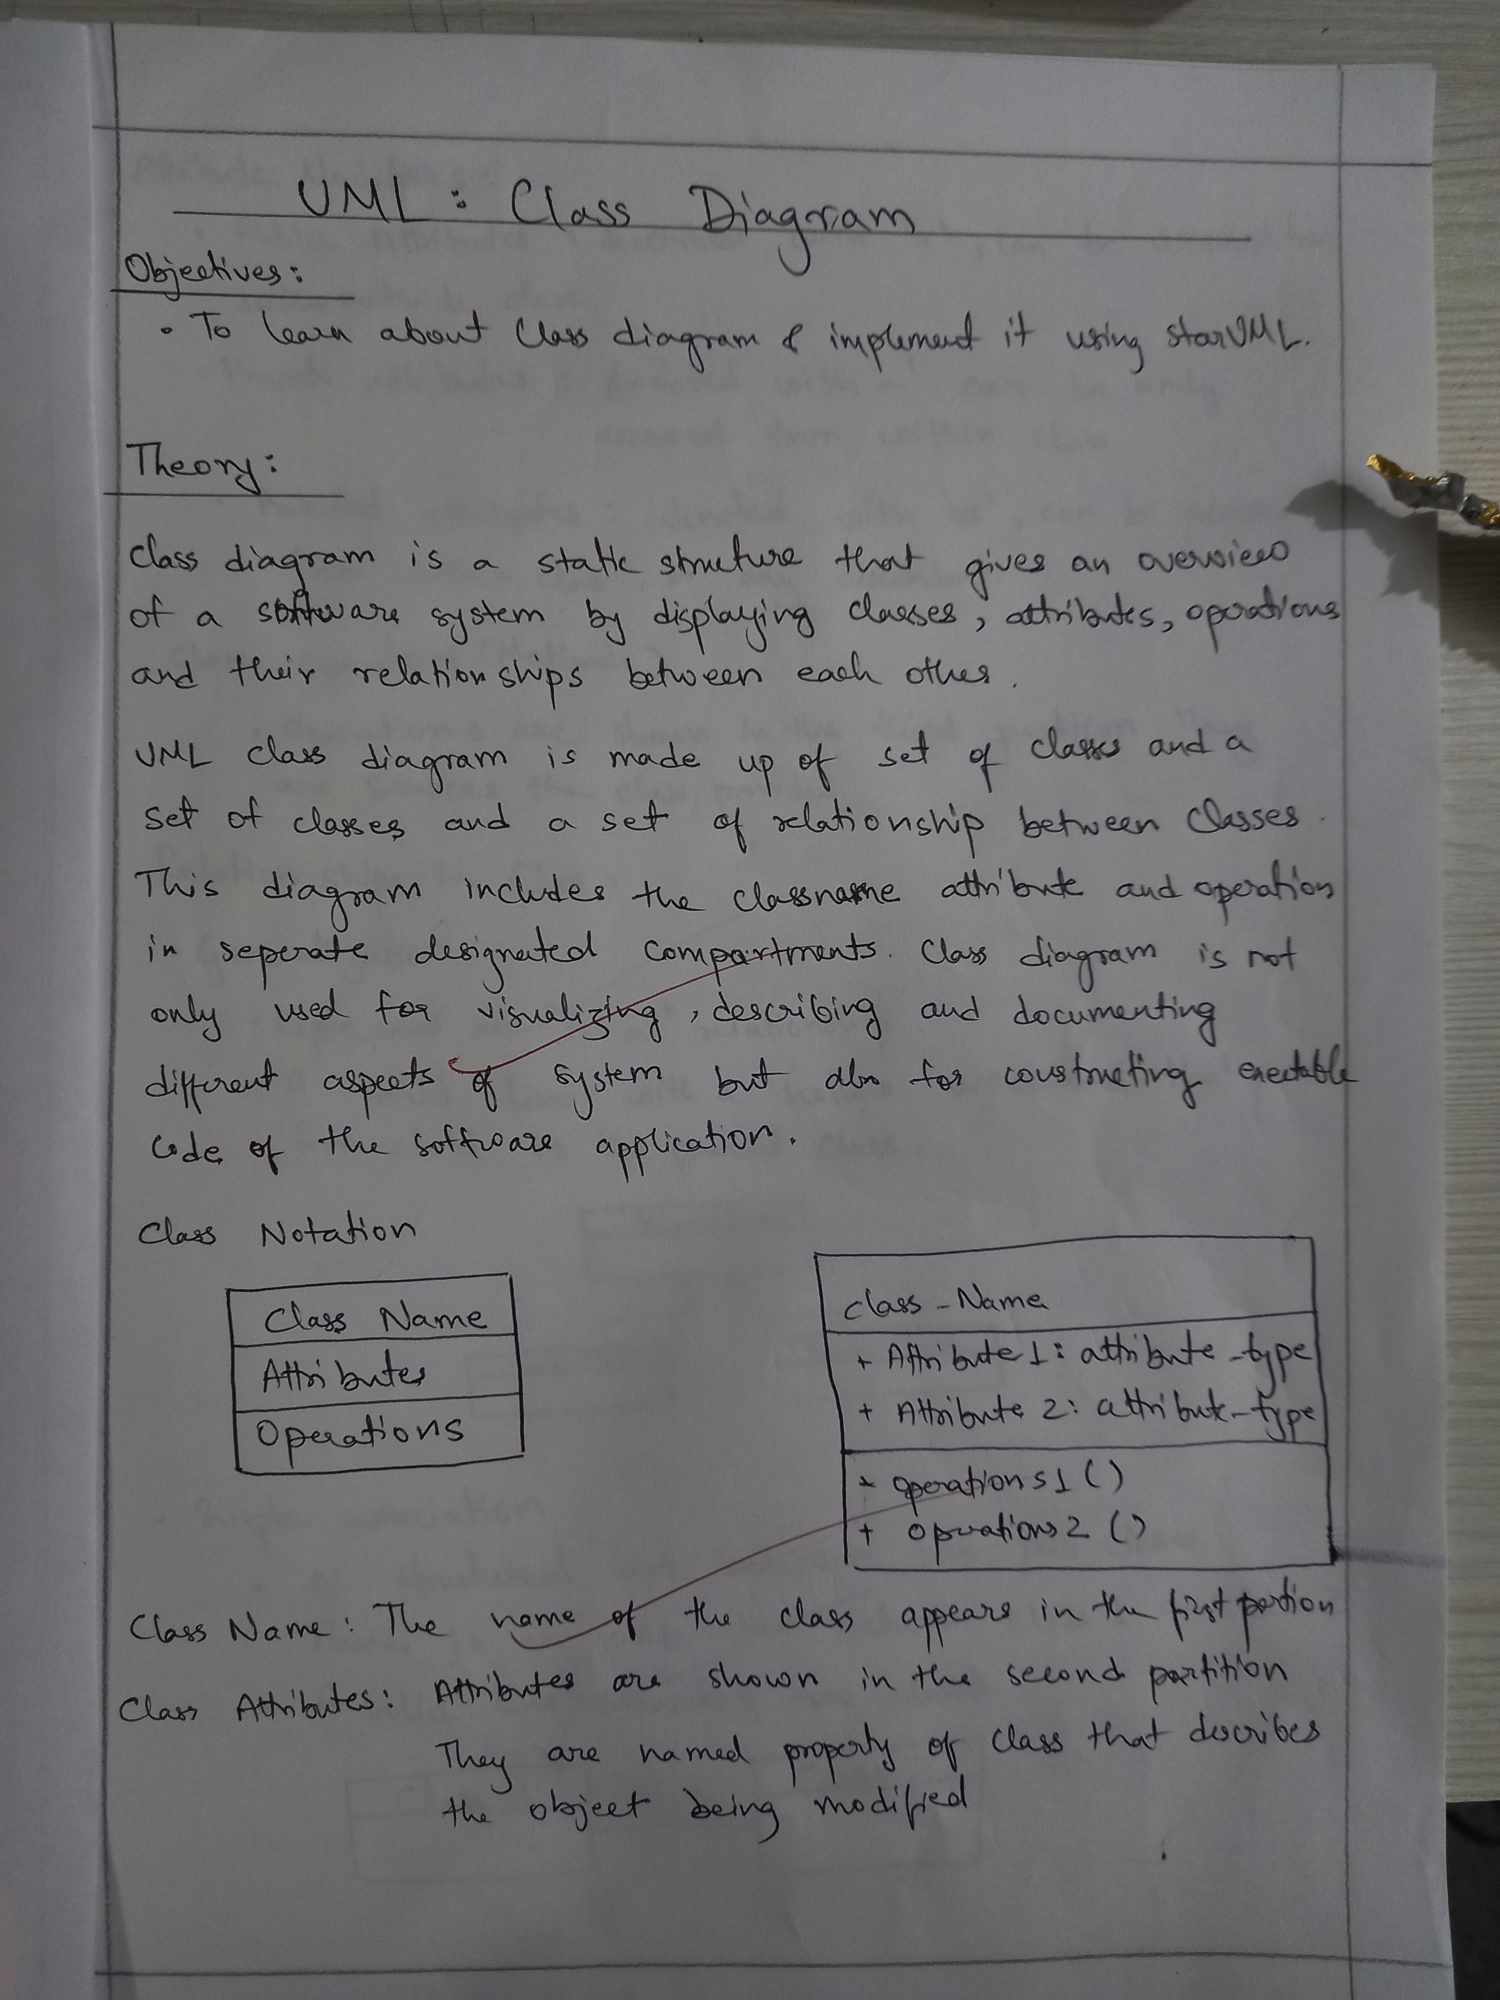 UML : Class Diagram
Objectives:
• To learn about Class diagram & implement it using starUML.
Theory:
Class diagram is a static struture that gives an overview
of a software system by displaying classes, attributes, operations
and their relationships between each other.
UML class diagram is made up of set of classes and a
set of classes and a set of relationship between classes.
This diagram includes the classname attribute and operation
in seperate designated compartments. Class diagram is not
only used for visualizing, describing and documenting
different aspects of system but also for constructing exectable
code of the software application.
Class Notation
Class Name
Attributes
Operations
class_Name
+ Attribute 1: attribute_type
+ Attribute 2: attribute_type
+ operations 1 ()
+ operations 2 ()
Class Name: The name of the class appears in the first portion
Class Attributes: Attributes are shown in the second partition
They are named property of class that describes
the object being modified